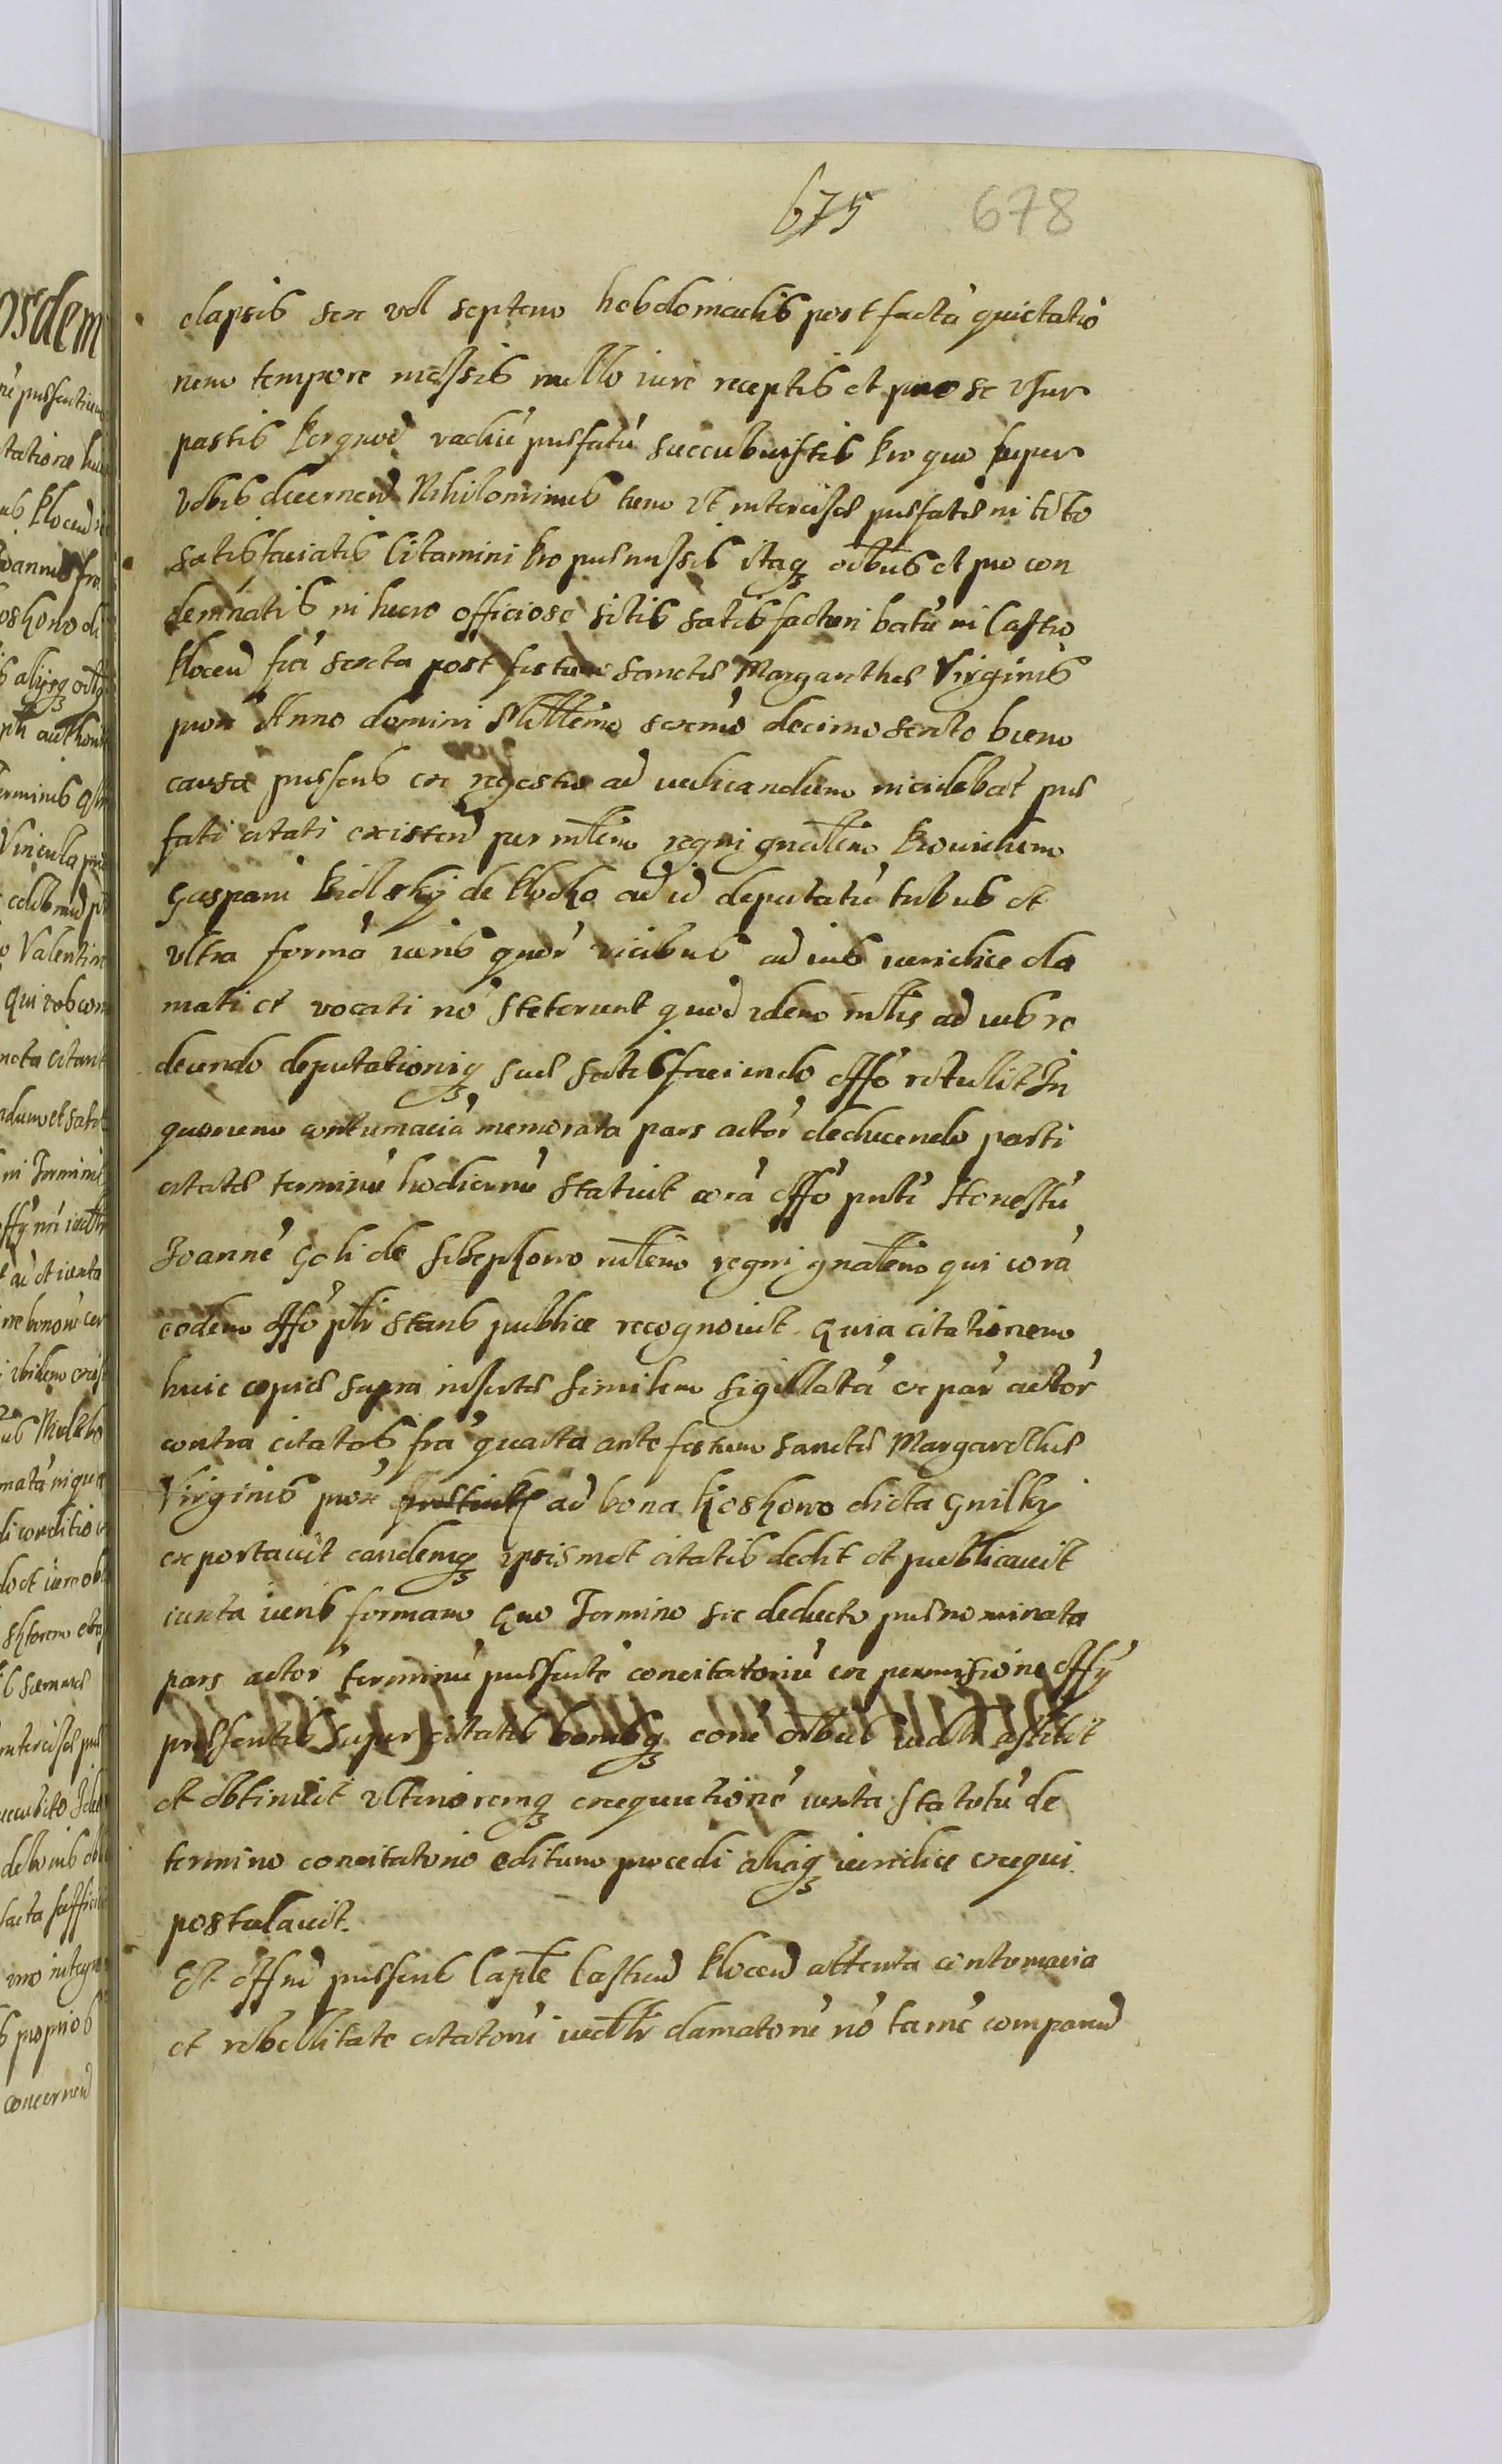 675 678
elapsis sex vel septem hebdomadis post factã quietatio
nem tempore messis nullo iure receptis et pro se vsur
pastis Per quod vadiũ pnsfatũ succubuistis Pro quo super
vobis decernend Nihilominus tum vt intercisae praefatae in toto
satisfaciatis Citamini Pro praemissis itaq oĩbus et pro con
demnatis in lucro officiose sitis satisfacturi Datũ in Castro
Plocen fria sexta post festum sanctae Margarethae Virginis
prox Anno domini Millemo sexcmo decimo sexto Dum
causa pnssens ex regestro ad iudicandum incidebat prae
fati citati existen per mlem regni gnalem Prouidum
Gaspari Bielsky de Plocko ad id deputatũ tribus et
vltra formã iuris quor vicibus ad ius iuridice cla
mati et vocati nõ steterunt quod idem mlis ad ius re
deundo deputationiq suae satisfaciendo offo retulit In
quorum contumaciã memorata pars actor deducendo parti
citatae terminũ hodiernũ statuit corã offo pnti Honestũ
Joannẽ Goli de mlem regni gnalem qui corã
eodem offo pnti stans publice recognouit quia citationem
huic copiae supra insertae similem sigillatã ex par actor
contra citatos friã quarta ante festum sanctae Margarethae
Virginis prox ad bona Kioskowo dicta Gnilky
exportauit eandemq ipsismet citatis dedit et publicauit
iuxta iuris formam Quo Termino sic deducto praenominata
pars actor terminũ pnssentẽ concitatoriũ ex permissione offy
praesentis super citatis bonisq eorũ oĩbus iudlr astitit
et obtinuit vlterioremq exequutionẽ iuxta statutũ de
termino concitatorio editum procedi aliaq iuridice exequi
postulauit.
Et offm pnssens Caple Castrend Plocen attenta contumacia
et rebellitate citatorũ iudlr clamatorũ nõ tamẽ comparen